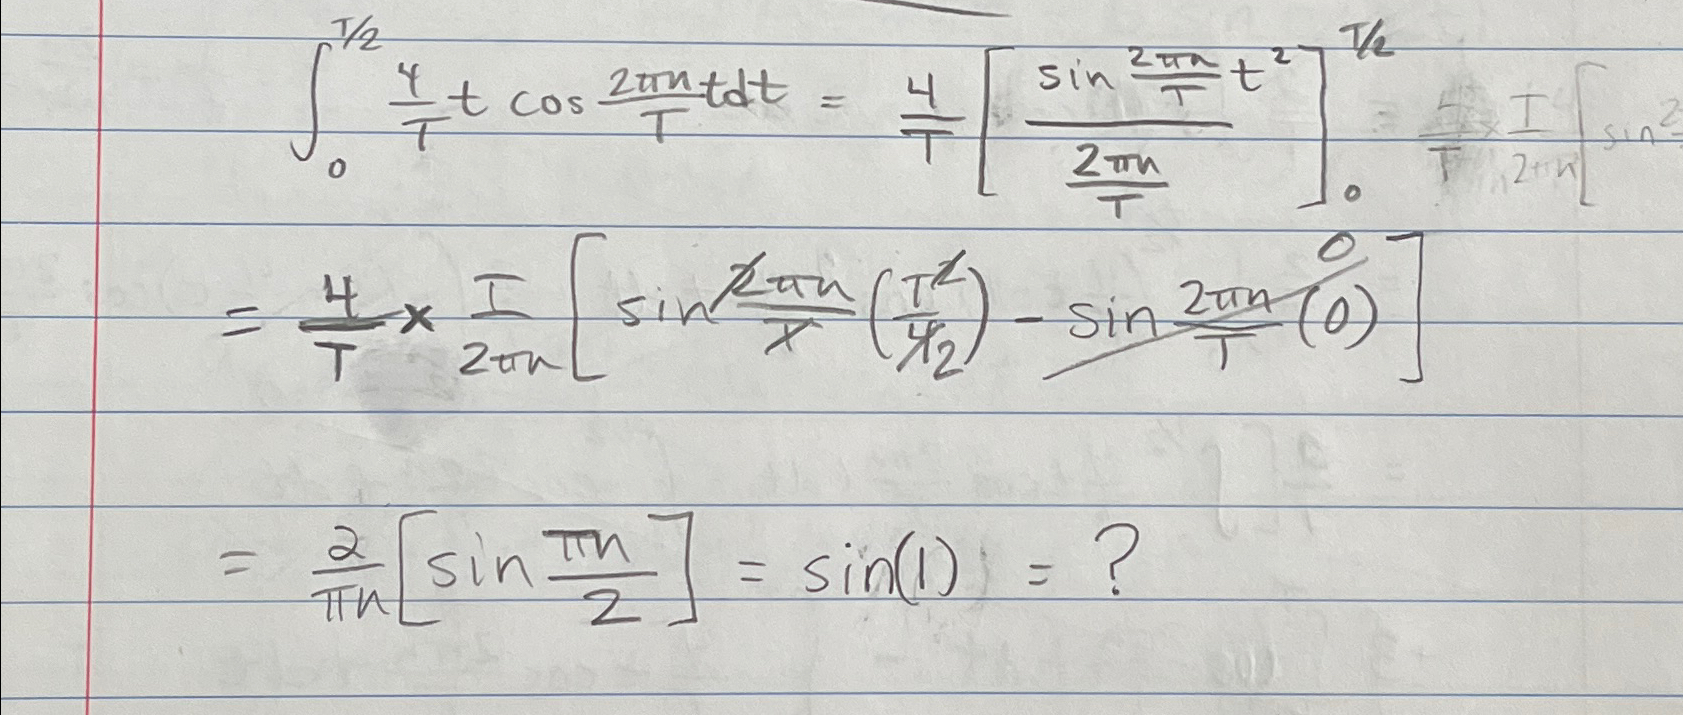 ∫₀^{T/2} 4/T t cos 2πn/T t dt = 4/T [ (sin 2πn/T t²) / (2πn/T) ]₀^{T/2} = 4/T × T/2πn [ sin 2
= 4/T × T/2πn [ sin 2πn/T (T²/4 2) - sin 2πn/T (0) 0 ]
= 2/πn [ sin πn/2 ] = sin(1) = ?